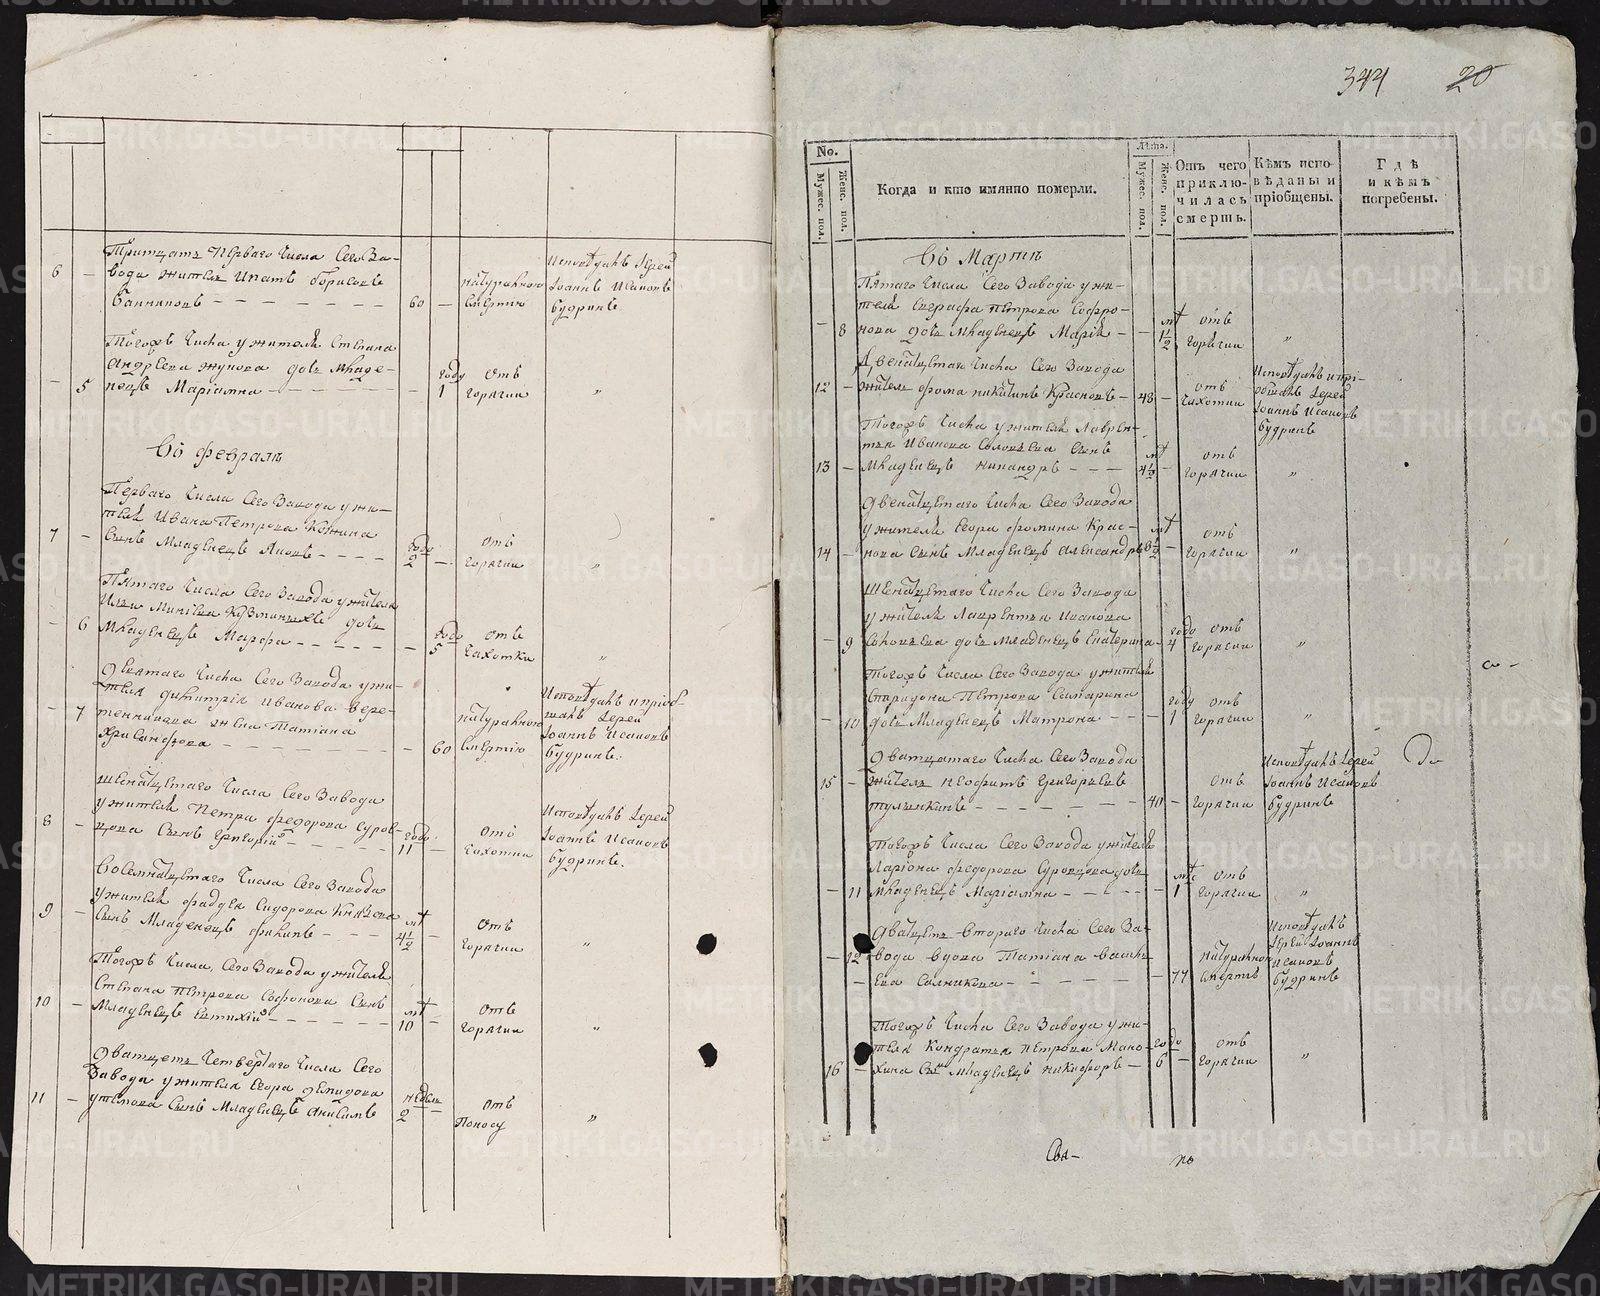 344 20
6 — Тритцать Перваго Числа Сего За-
вода житель Ипатъ Борисовъ
Банниковъ — 60 — натуральною смертию
Исповѣданъ Иерей
Іоаннъ Исаковъ
Будринъ.
Тогожъ числа у жителя Степана
Андреева Жукова дочь младе-
— 5 нецъ Маріамна — — году 1 отъ горячки „
Во Февралѣ
Перваго Числа Сего Завода у жи-
теля Ивана Петрова Кожина
7 — сынъ Младенецъ Яковъ — годо 2 — отъ горячки „
Пятаго Числа Сего Завода у жителя
— 6 Младенецъ Марфа — — годо 5 отъ чахотки „
Девятаго Числа Сего Завода у жи-
теля Димитрія Иванова Вере-
— 7 тенникова жена Татіана
— 60 натуральною смертію
Исповѣданъ и пріоб-
щанъ Іерей
Іоаннъ Исаковъ
Будринъ.
Числа Сего Завода
у жителя Петра Федорова Суров-
8 — цова сынъ Григорій — годо 11 — отъ чахотки
Исповѣданъ Іерей
Іоаннъ Исаковъ
Будринъ.
Числа Сего Завода
у жителя Фадея Сидорова Князева
9 — сынъ Младенецъ — 4½ — отъ горячки „
Тогожъ Числа, Сего Завода у жителя
Степана Петрова Софонова сынъ
10 — Младенецъ Евтихій — 10 — отъ горячки „
Дватцеть Четвертаго Числа Сего
Завода у жителя Егора Демидова
11 — сынъ Младенецъ Анисимъ недель 2 — отъ поносу „
No. Мужес. пол. Женс. пол.
Когда и кто имянно померли.
Лѣта. Мужес. пол. Женс. пол.
Отъ чего приклю-чилась смерть.
Кѣмъ испо-вѣданы и пріобщены.
Гдѣ и кѣмъ погребены.
Во Мартѣ
Пятаго Числа Сего Завода у жи-
теля Евграфа Петрова Софро-
— 8 нова дочь Младенецъ Марія — — 1½ отъ горячки „
Двенатцетаго Числа Сего Завода
12 — житель Фома Никитинъ Красновъ — 48 — отъ чахотки
Исповѣданъ и прі-
общанъ Іерей
Іоаннъ Исаковъ
Будринъ
Тогожъ Числа у жителя Лаврен-
тья Иванова сынъ
13 — Младенецъ Никандръ — 4½ — отъ горячки „
Двенатцетаго Числа Сего Завода
у жителя Егора Фомина Крас-
14 — нова сынъ Младенецъ Александръ 8½ — отъ горячки „
Числа Сего Завода
у жителя Лаврентья Иванова
— 9 дочь Младенецъ Екатерина — годо 4 отъ горячки „
Тогожъ Числа Сего Завода у жителя
Спиридона Петрова
— 10 дочь Младенецъ Матрона — — году 1 отъ горячки „
Дватцатаго Числа Сего Завода
15 — житель Неофитъ Григорьевъ
— 40 — отъ горячки
Исповѣданъ Іерей
Іоаннъ Исаковъ
Будринъ
Тогожъ Числа Сего Завода у жителя
Ларіона Федорова Суровцова дочь
— 11 Младенецъ Маріамна — — 1 отъ горячки „
Дватцеть Втораго Числа Сего За-
— 12 вода вдова Татіана Василь-
ева — 77 натурально смерть
Исповѣданъ
Іерей Іоаннъ
Исаковъ
Будринъ
Тогожъ Числа Сего Завода у жи-
теля Кондратья Петрова Мано-
16 — хина сынъ Младенецъ Никифоръ — годо 6 — отъ горячки „
METRIKI.GASO-URAL.RU